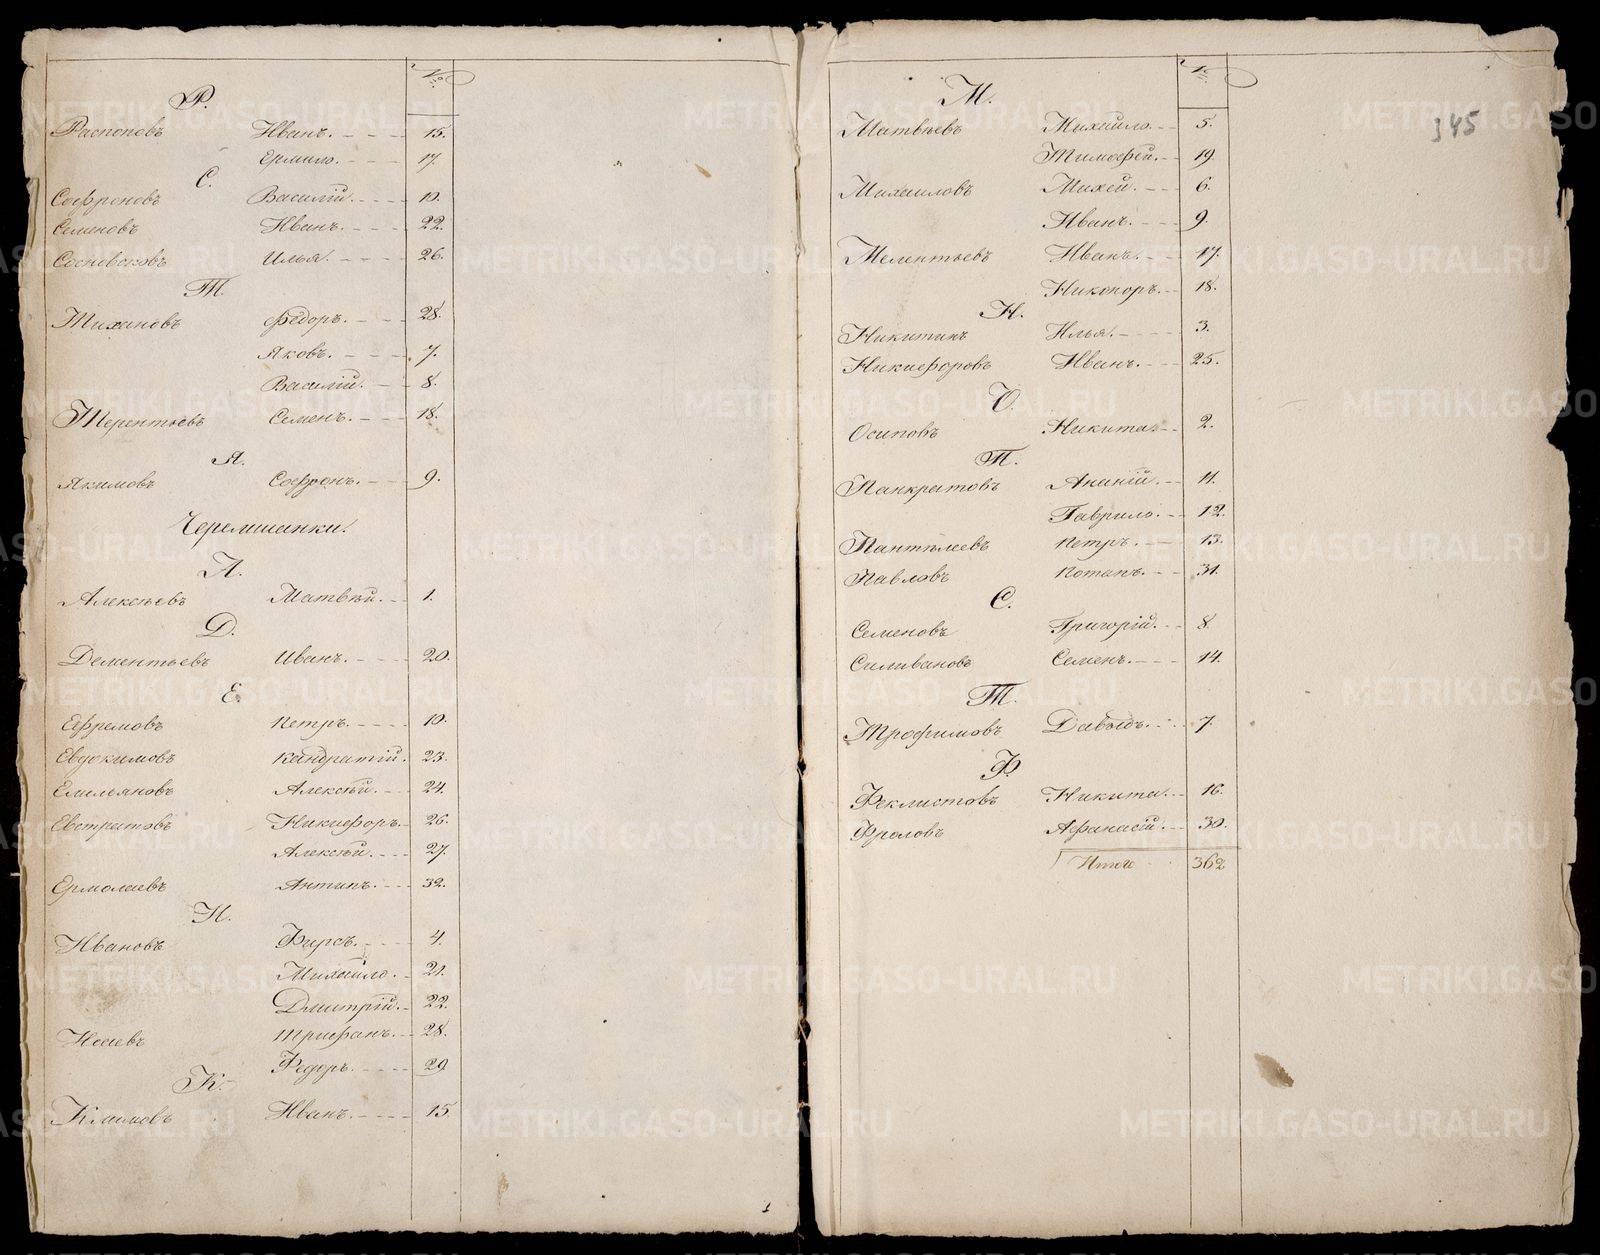 №
Р.
Распоповъ Иванъ. 15.
Ермило. 17.
С.
Софроновъ Василій. 10.
Семеновъ Иванъ. 22.
Сосновсковъ Илья. 26.
Т.
Тихановъ Федоръ. 28.
Яковъ. 7.
Василій. 8.
Терентьевъ Семенъ. 18.
Я.
Якимовъ Софронъ. 9.
Черемшанки.
А.
Алексѣевъ Матвѣй. 1.
Д.
Дементьевъ Иванъ. 20.
Е.
Ефремовъ Петръ. 10.
Евдокимовъ Кандратій. 23.
Емельяновъ Алексѣй. 24.
Евстратовъ Никифоръ. 26.
Алексѣй. 27.
Ермолаевъ Антипъ. 32.
И.
Ивановъ Фирсъ. 4.
Михайло. 21.
Дмитрій. 22.
Исаевъ Трифанъ. 28.
Федоръ. 29
К.
Климовъ Иванъ. 15.
1
№
345
М.
Матвѣевъ Михайло. 5.
Тимофей. 19.
Михаиловъ Михей. 6.
Иванъ. 9.
Мелентьевъ Иванъ. 17.
Никоноръ. 18.
Н.
Никитинъ Илья. 3.
Никифоровъ Иванъ. 25.
О.
Осиповъ Никита. 2.
П.
Панкратовъ Ананій. 11.
Гаврило. 12.
Пантѣлеевъ Петръ. 13.
Павловъ Потапъ. 31.
С.
Семеновъ Григорій. 8.
Силивановъ Семенъ. 14.
Т.
Трофимовъ Давыдъ. 7.
Ф.
Феклистовъ Никита. 16.
Фроловъ Афанасій. 30.
Итого 362
METRIKI.GASO-URAL.RU